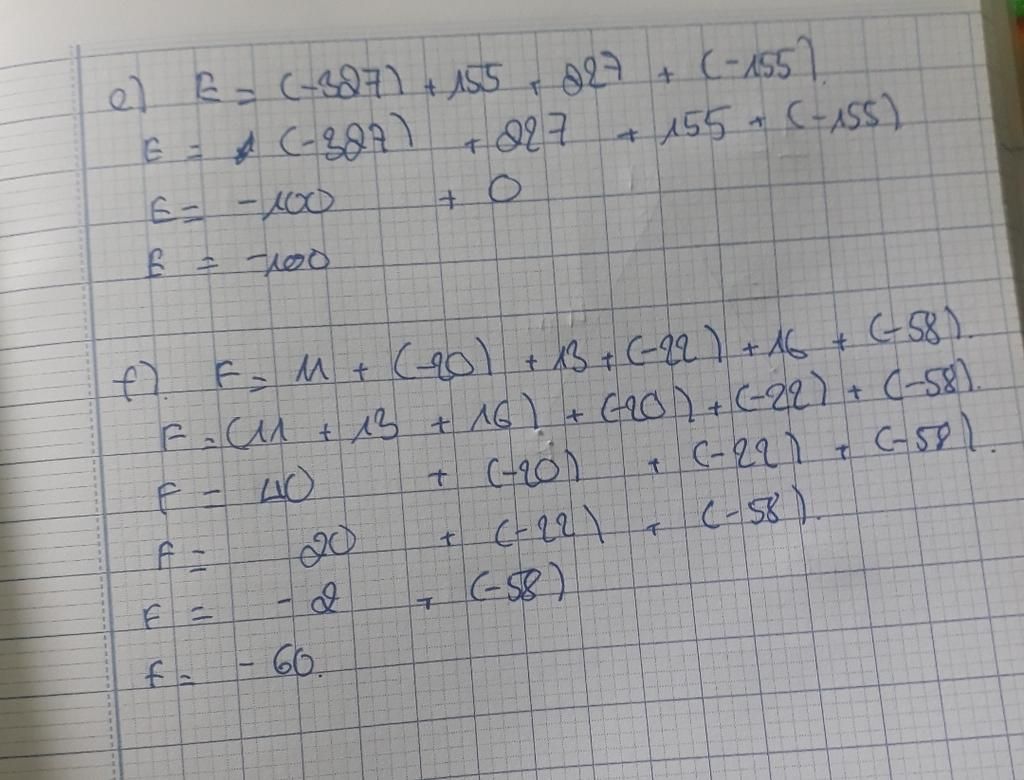 e) E = (-327) + 155 + 227 + (-155).
E = (-327) + 227 + 155 + (-155)
E = -100 + 0
E = -100
f) F = 11 + (-20) + 13 + (-22) + 16 + (-58).
F = (11 + 13 + 16) + (-20) + (-22) + (-58).
F = 40 + (-20) + (-22) + (-58).
F = 20 + (-22) + (-58).
F = -2 + (-58)
F = -60.